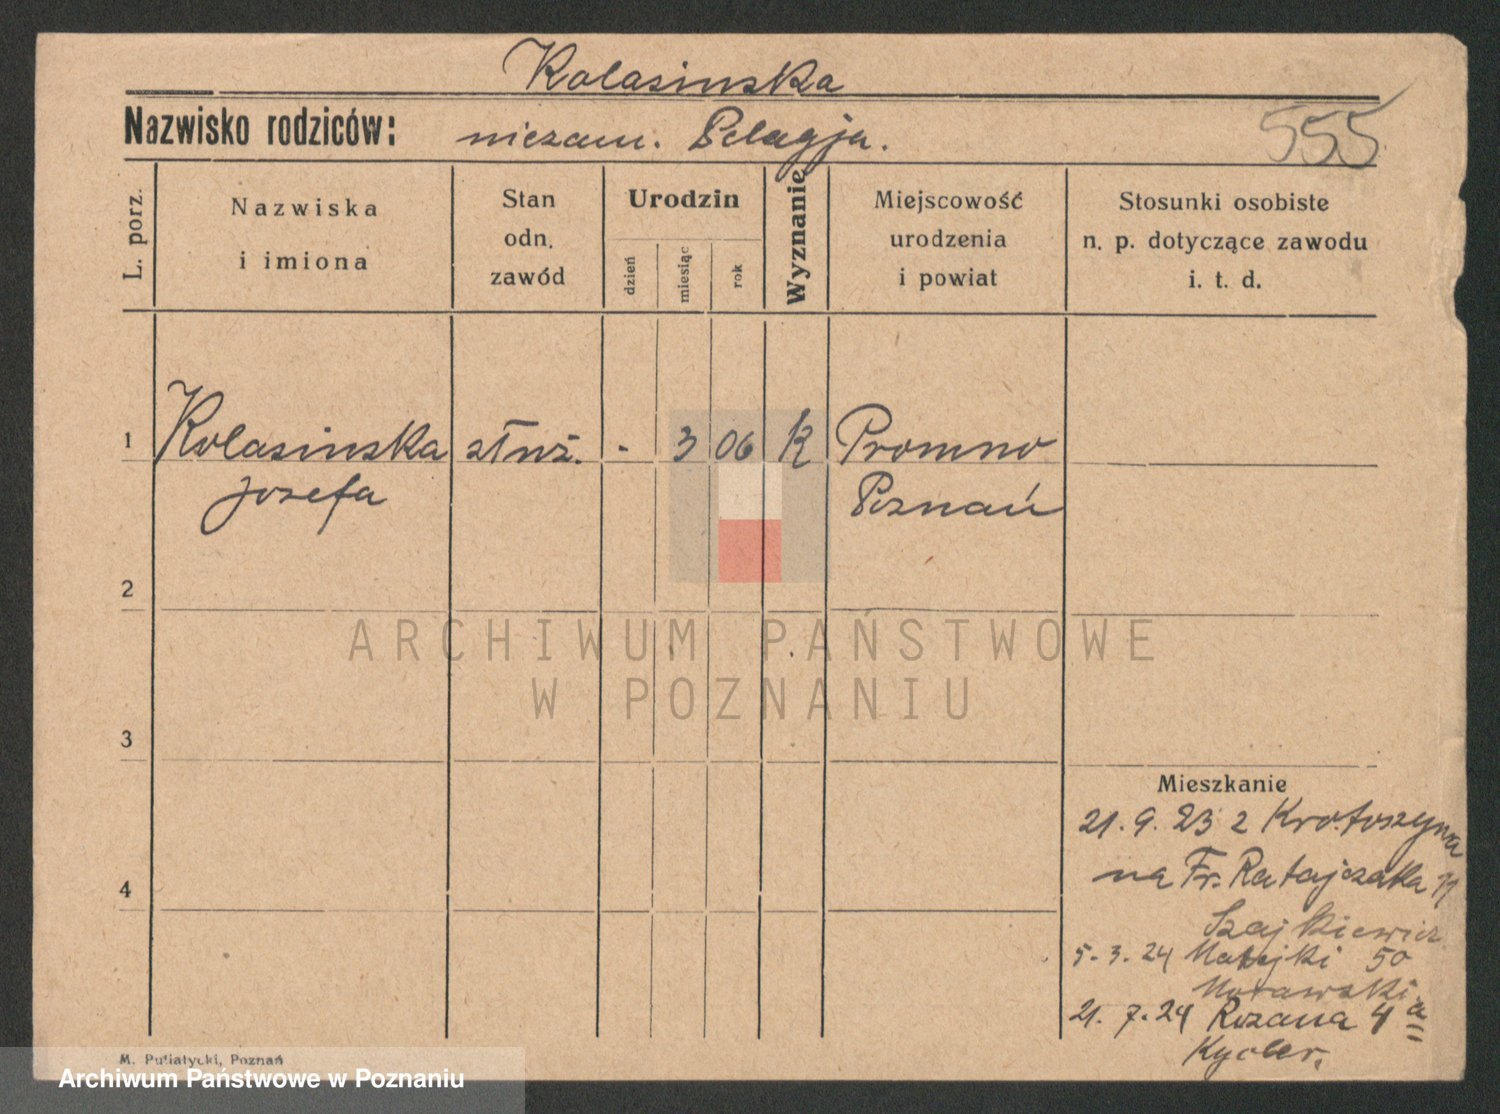 Kolasinska
Nazwisko rodziców: niezam. Pelagja.
555
L. porz.
Nazwiska
i imiona
Stan
odn.
zawód
Urodzin
dzień
miesiąc
rok
Wyznanie
Miejscowość
urodzenia
i powiat
Stosunki osobiste
n. p. dotyczące zawodu
i. t. d.
1 Kolasinska służ. - 3 06 k Promno
Josefa Poznań
2
ARCHIWUM PAŃSTWOWE
W POZNANIU
3
Mieszkanie
21. 9. 23 z Krotoszyna
4
na Fr. Ratajczaka 11
Szajkiewicz
5. 3. 24 Matejki 50
Morawski
21. 7. 24 Rozana 4a
M. Putiatycki, Poznań
Archiwum Państwowe w Poznaniu